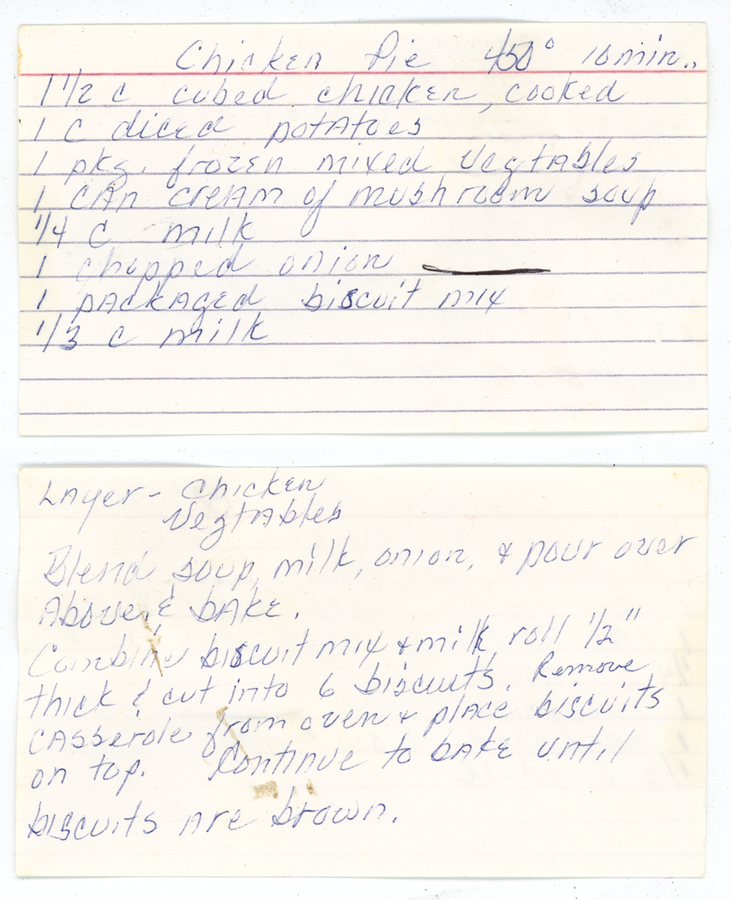 Chicken Pie 450° 10 min..
1 1/2 c cubed chicken, cooked
1 c diced potatoes
1 pkg. frozen mixed vegtables
1 can cream of mushroom soup
1/4 c milk
1 chopped onion
1 packaged biscuit mix
1/3 c milk
Layer - Chicken
Vegtables
Blend soup, milk, onion, & pour over
Above & bake.
Combine biscuit mix & milk, roll 1/2"
thick & cut into 6 biscuits. Remove
casserole from oven & place biscuits
on top. Continue to bake until
biscuits are brown.